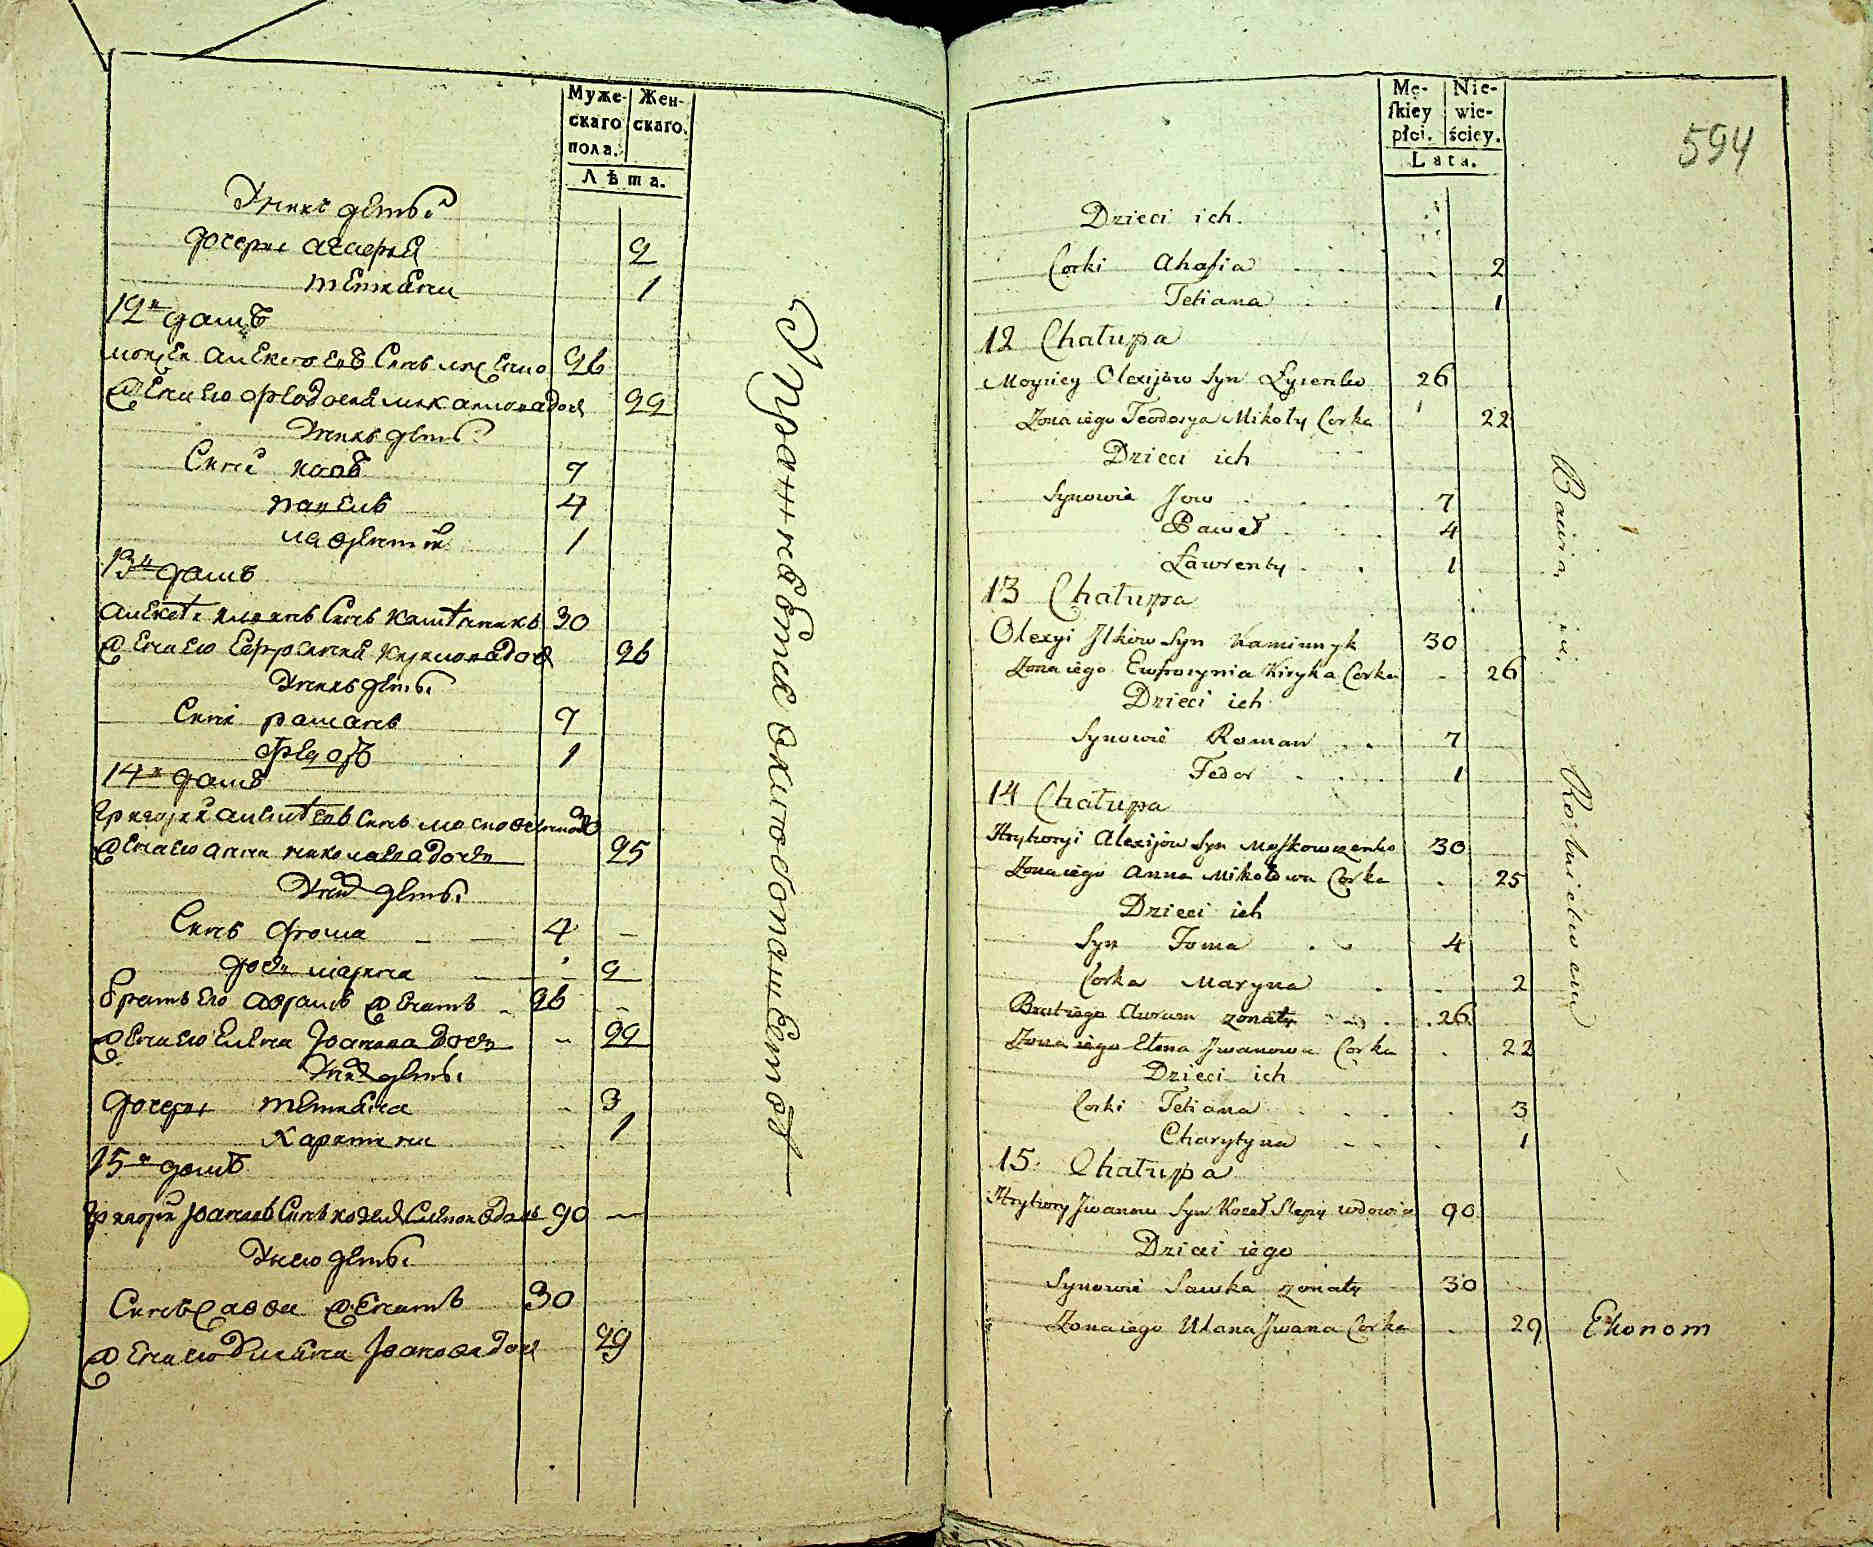 Муже- Жен-
скаго скаго.
пола.
Лѣта.
У нихъ дети
дочери агафия 2
тетияна 1
12й домъ
моисей алексеевъ Синъ лисенко 26
жена его феодосия миколиова доч 22
У нихъ дети
Сини иовъ 7
павелъ 4
лаврентий 1
13й домъ
алексей илковъ Синъ каменикъ 30
жена его Ефросиния кирикова доч 26
У нихъ дети
Сини романъ 7
федоръ 1
14й домъ
григорий алексеевъ Синъ 30
жена его анна николаева дочь 25
У них дети
Синъ фома 4
дочь марина 2
братъ его аврамъ женатъ 26
жена его Елена Iоанова дочь 22
У них дети
дочери тетияна 3
харитина 1
15й домъ
григорий Iоановъ Синъ козел Слепой вдовъ 90
У него дети
Синъ Савва женатъ 30
жена его Улияна Iоанова доч 29
Упражняются хлебопашеством
Mę- Nie-
ſkiey wie-
płci. ściey.
Lata.
594
Dzieci ich.
Corki Ahafia 2
Tetiana 1
12 Chałupa
Moysiey Olexijow Syn Łysenko 26
Zona iego Teodosya Mikoły Corka 22
Dzieci ich
Synowie Jow 7
Paweł 4
Ławrenty 1
13 Chałupa
Olexyi Ilkow Syn Kaminnyk 30
Zona iego Ewfrosynia Kiryka Corka 26
Dzieci ich
Synowie Roman 7
Fedor 1
14 Chałupa
Hryhoryi Alexijow Syn Moſkowczenko 30
Zona iego Anna Mikołowa Corka 25
Dzieci ich
Syn Foma 4
Corka Maryna 2
Brat iego Awram zonaty 26
Zona iego Elena Jwanowa Corka 22
Dzieci ich
Corki Tetiana 3
Charytyna 1
15 Chałupa
Hryhory Jwanow Syn Kozeł Slepy wdowiec 90
Dzieci iego
Synowie Sawka zonaty 30
Zona iego Ulana Jwana Corka 29
Bawią się Rolnictwem
Ekonom